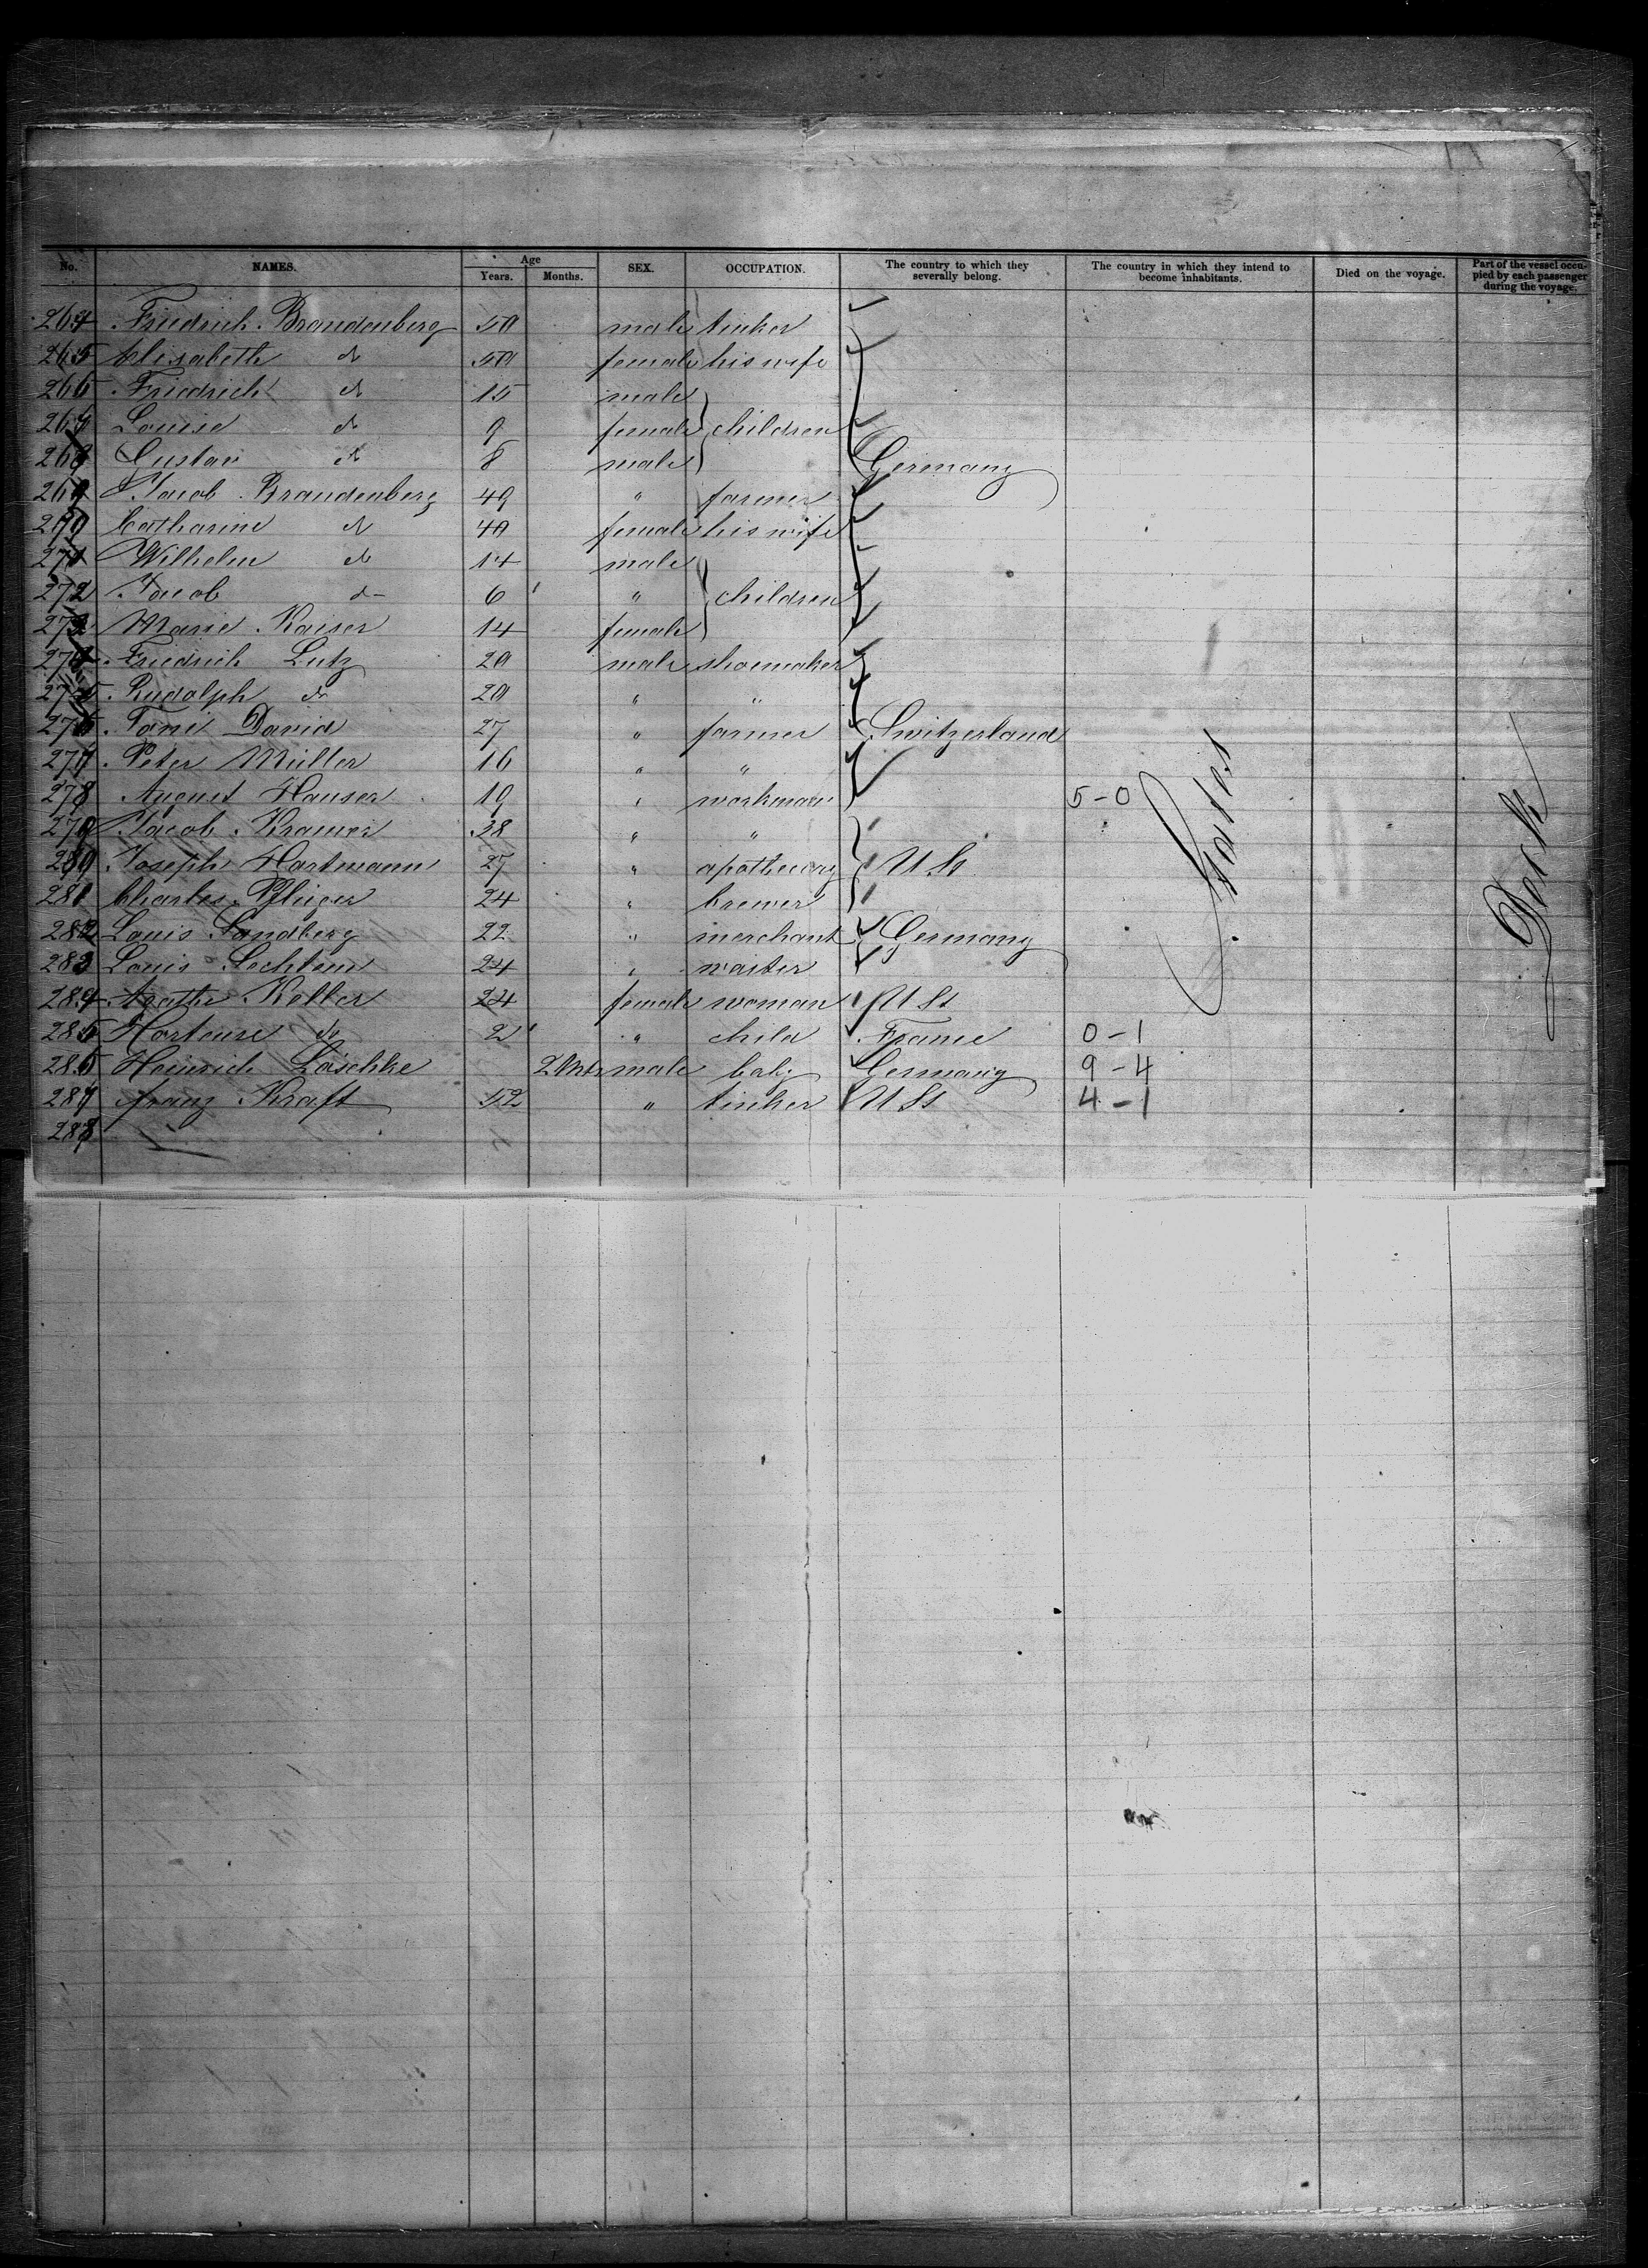 No. NAMES. Age Years. Months. SEX. OCCUPATION. The country to which they severally belong. The country in which they intend to become inhabitants. Died on the voyage. Part of the vessel occupied by each passenger during the voyage.
264 Friedrich Brandenberg 50 male tinker
265 Elisabeth do 50 female his wife
266 Friedrich do 15 male
267 Louise do 9 female children
268 Gustav do 8 male Germany
269 Jacob Brandenberg 49 " farmer
270 Catharine do 40 female his wife
271 Wilhelm do 14 male
272 Jacob do 6 " children
273 Marie Kaiser 14 female
274 Friedrich Lutz 20 male shoemaker
275 Rudolph do 20 " "
276 David 27 " farmer Switzerland
277 Peter Müller 16 " "
278 August Hauser 19 " workman 5-0
279 Jacob Kramer 38 " "
280 Joseph Hartmann 27 " apothecary U St
281 Charles Pflüger 24 " brewer
282 Louis Sandberg 22 " merchant Germany
283 Louis Lechtem 24 " waiter
284 Agathe Keller 24 female woman U St
285 Hortense do 2 " child France 0-1
286 Heinrich Löschke 2 Mts male baby Germany 9-4
287 Franz Kraft 52 " tinker U St 4-1
288
States
Deck